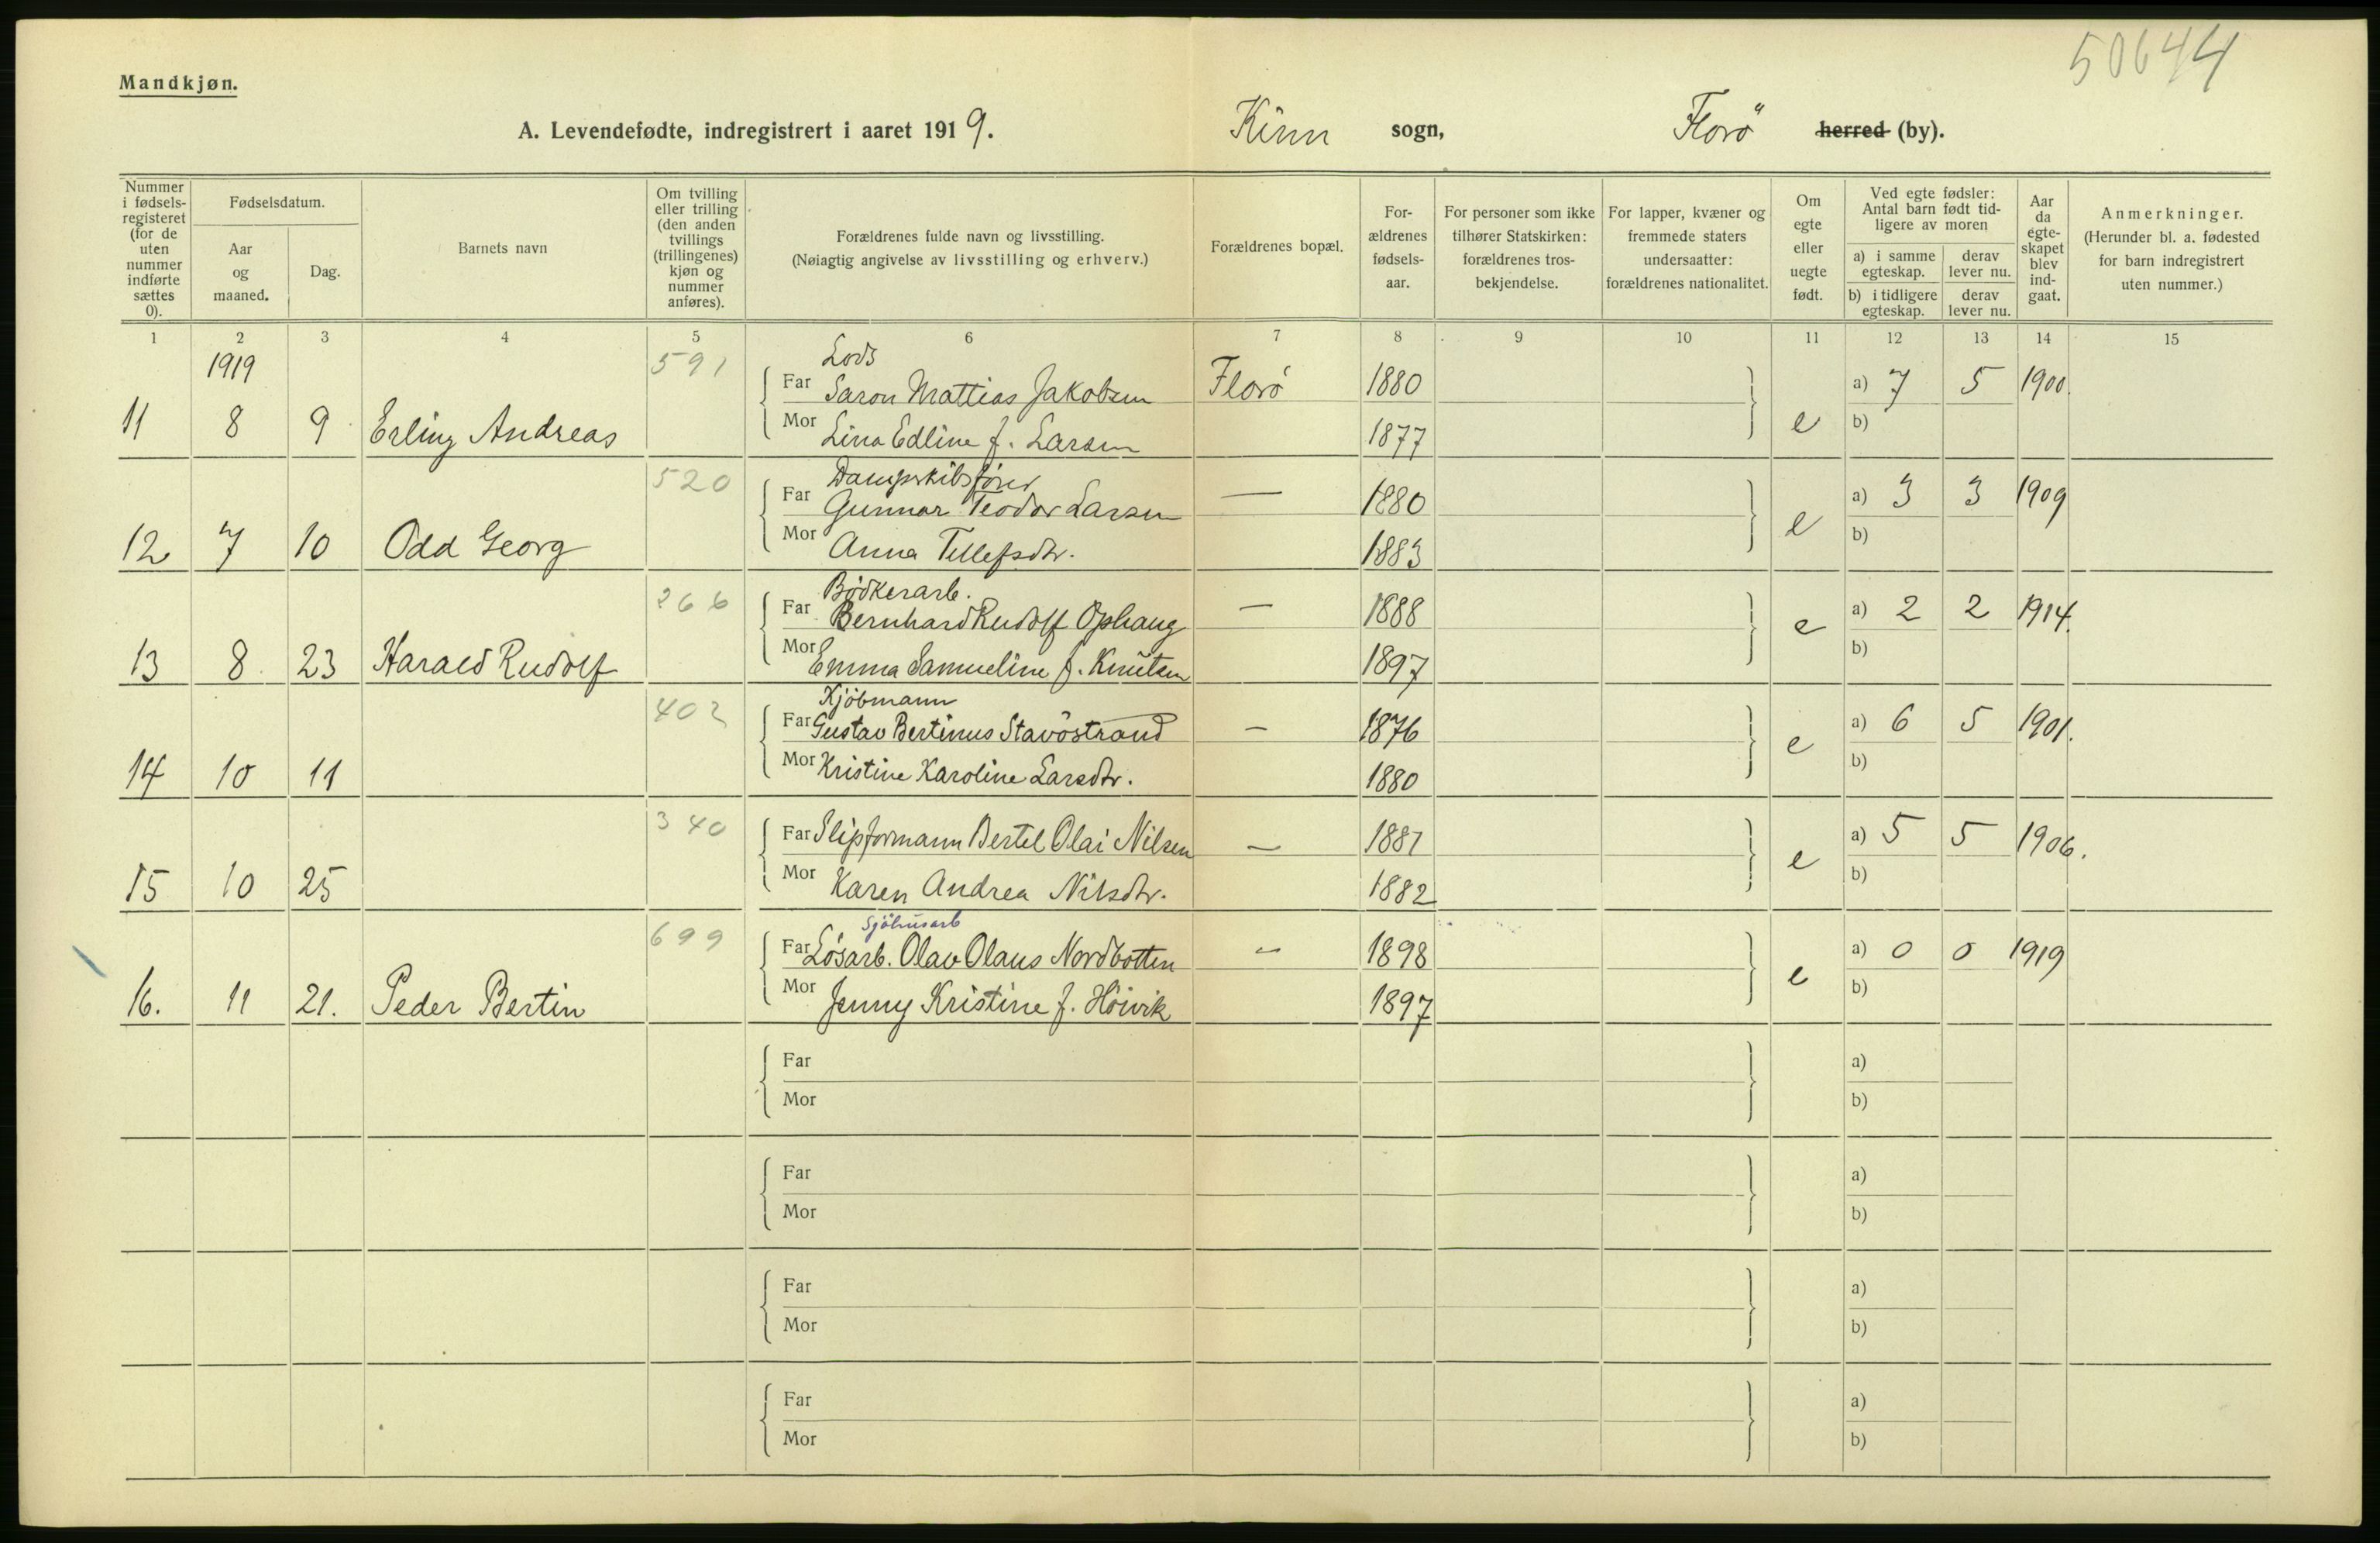 50644
Mandkjøn.
A. Levendefødte, indregistrert i aaret 1919. Kinn sogn, Florö herred (by).
Nummer i fødsels-registeret (for de uten nummer indførte sættes 0).
Fødselsdatum.
Aar og maaned.
Dag.
Barnets navn
Om tvilling eller trilling (den anden tvillings (trillingenes) kjøn og nummer anføres).
Forældrenes fulde navn og livsstilling.
(Nøiagtig angivelse av livsstilling og erhverv.)
Forældrenes bopæl.
For-ældrenes fødsels-aar.
For personer som ikke tilhører Statskirken: forældrenes tros-bekjendelse.
For lapper, kvæner og fremmede staters undersaatter: forældrenes nationalitet.
Om egte eller uegte født.
Ved egte fødsler: Antal barn født tid-ligere av moren
a) i samme egteskap.
derav lever nu.
b) i tidligere egteskap.
derav lever nu.
Aar da egte-skapet blev ind-gaat.
Anmerkninger.
(Herunder bl. a. fødested for barn indregistrert uten nummer.)
1 2 3 4 5 6 7 8 9 10 11 12 13 14 15
1919 591 Lods
Far Saron Mattias Jakobsen Florö 1880 a) 7 5 1900.
11 8 9 Erling Andreas Mor Lina Edline f. Larsen 1877 e b)
520 Dampskibsförer
Far Gunnar Teodor Larsen — 1880 a) 3 3 1909
12 7 10 Odd Georg Mor Anna Tellefsdtr. 1883 e b)
266 Bödkerarb.
Far Bernhard Rudolf Ophaug — 1888 a) 2 2 1914.
13 8 23 Harald Rudolf Mor Emma Samueline f. Knutsen 1897 e b)
402 Kjöbmann
Far Gustav Bertinus Stavöstrand — 1876 a) 6 5 1901.
14 10 11 Mor Kristine Karoline Larsdtr. 1880 e b)
340
Far Slipformann Bertel Olai Nilsen — 1881 a) 5 5 1906.
15 10 25 Mor Karen Andrea Nilsdtr. 1882 e b)
699 Sjöhusarb
Far Lösarb. Olav Olaus Nordbotten — 1898 a) 0 0 1919
16. 11 21. Peder Bertin Mor Jenny Kristine f. Höivik 1897 e b)
Far a)
Mor b)
Far a)
Mor b)
Far a)
Mor b)
Far a)
Mor b)